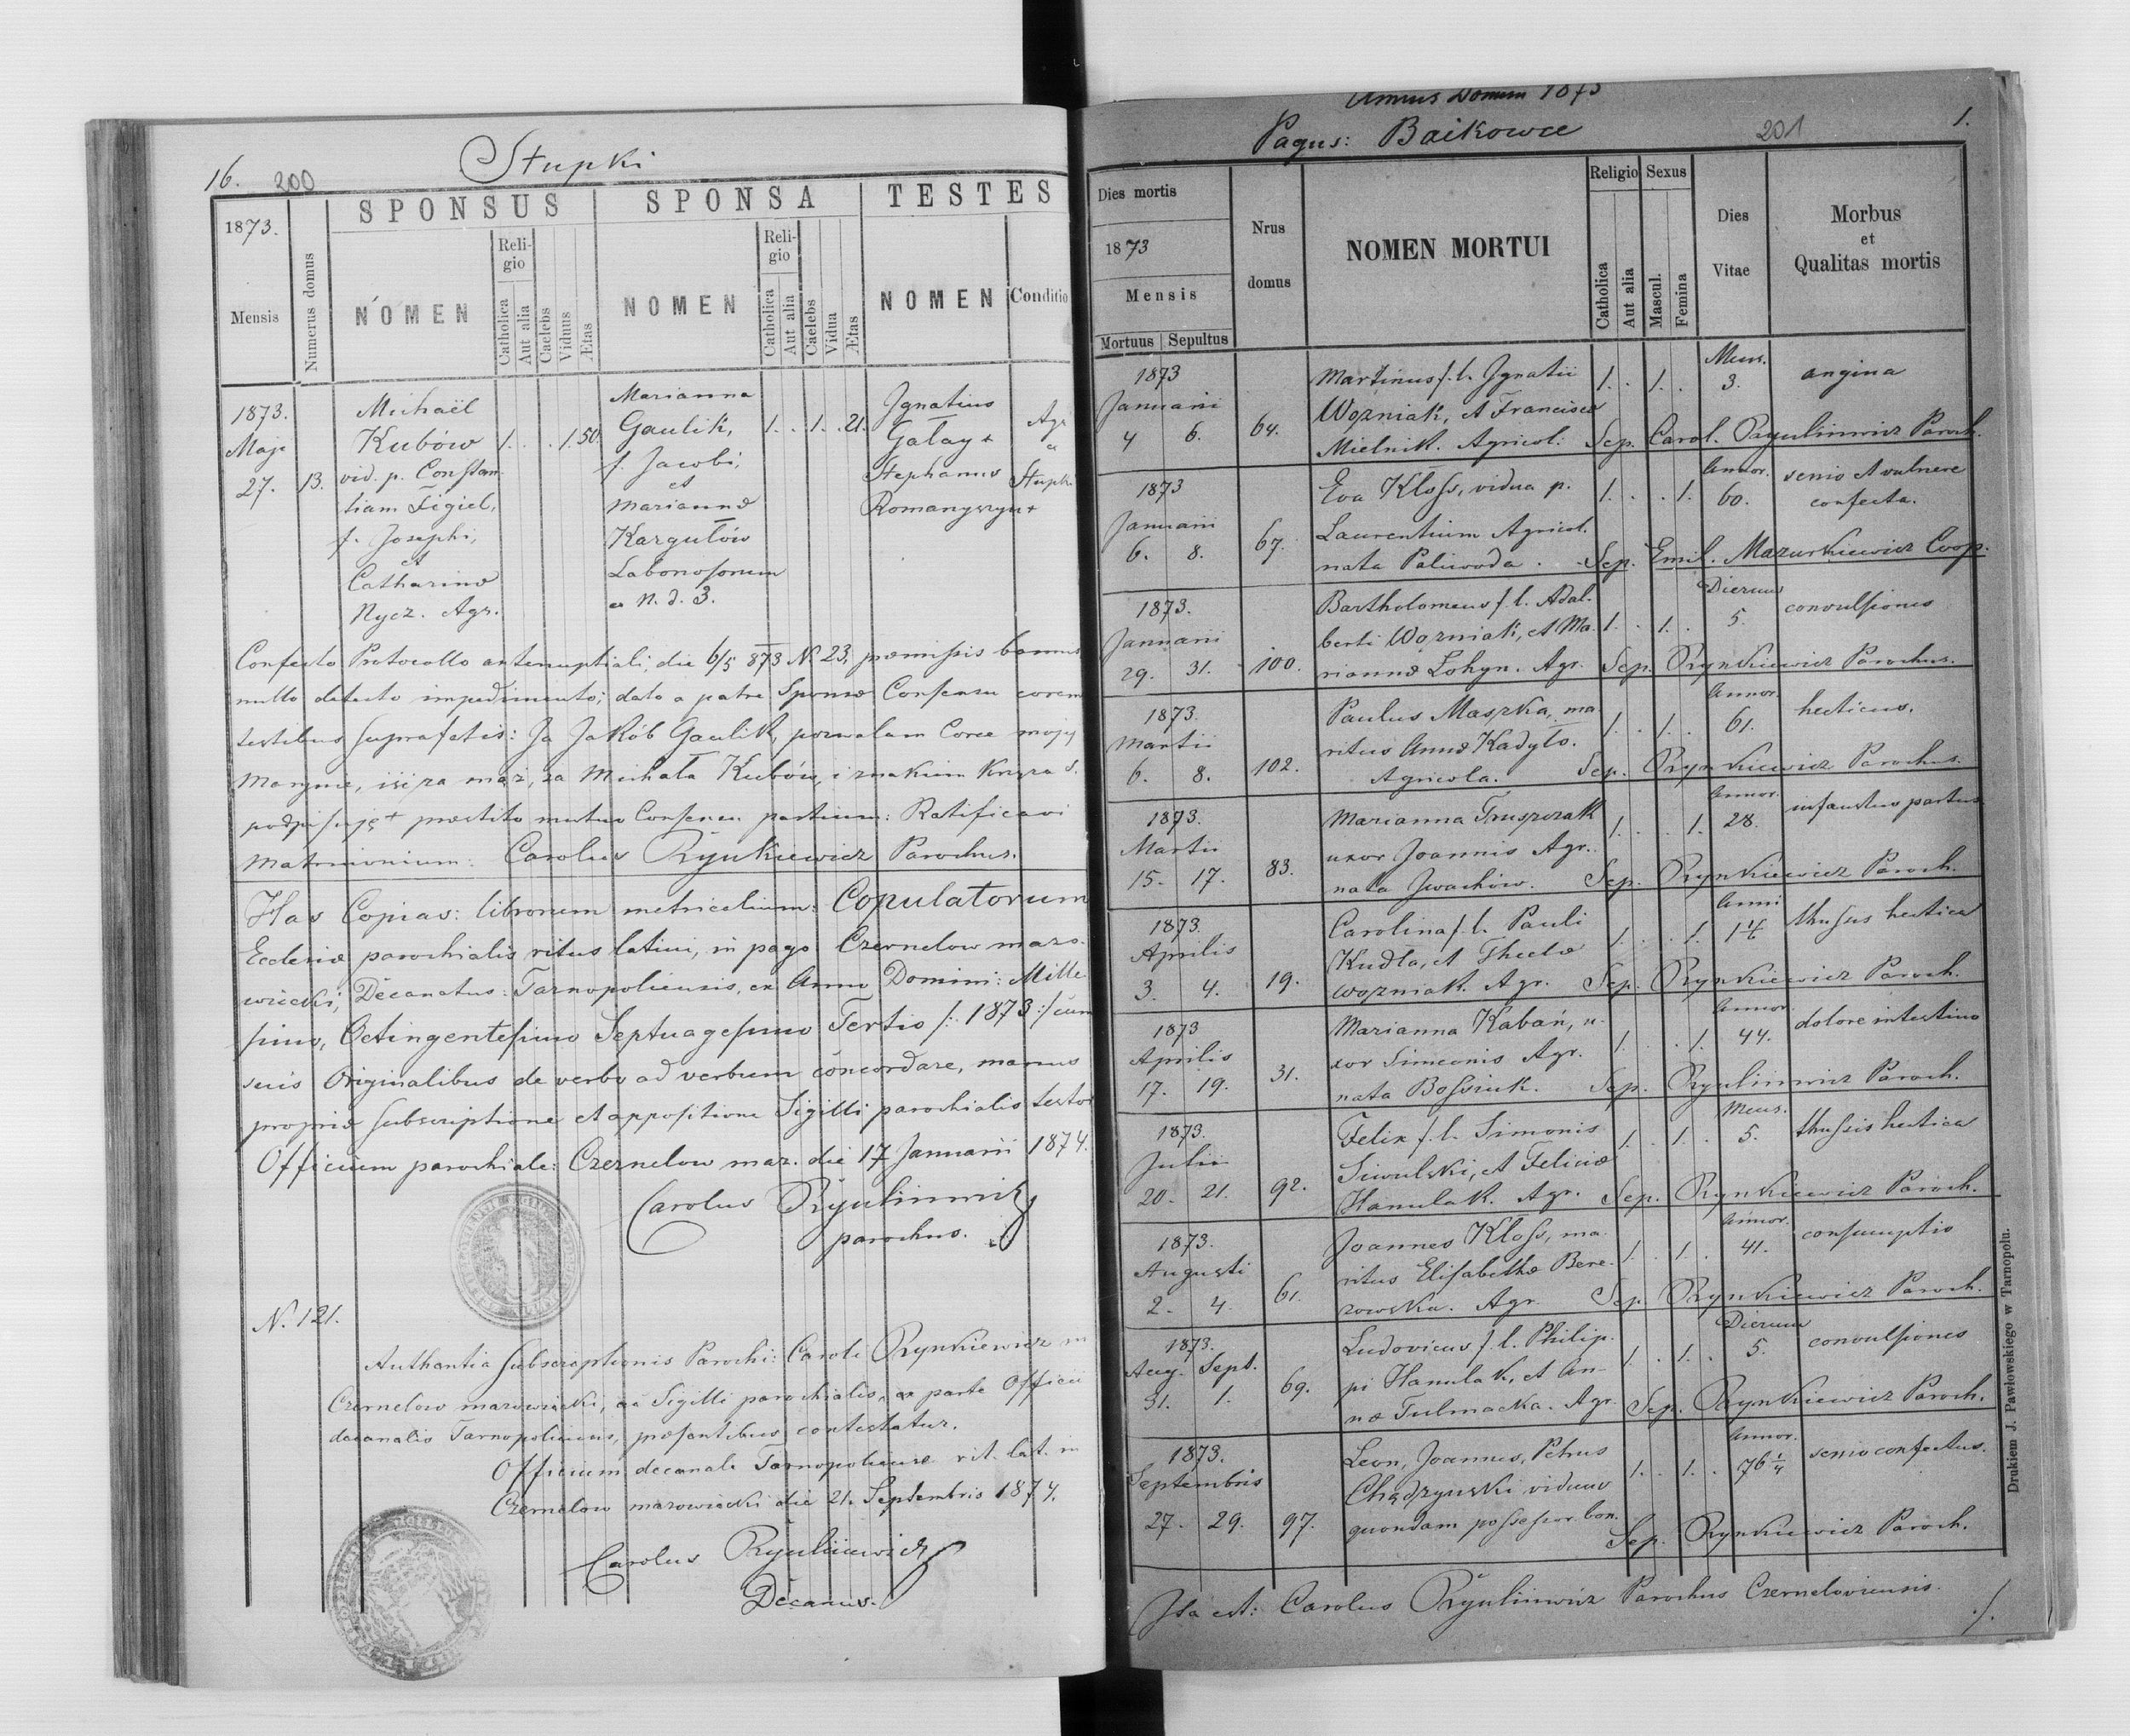 16. 200
Stupki
SPONSUS SPONSA TESTES
1873.
Mensis
Numerus domus
NOMEN
Religio
Catholica
Aut alia
Caelebs
Viduus
Ætas
NOMEN
Religio
Catholica
Aut alia
Caelebs
Vidua
Ætas
NOMEN
Conditio
1873.
Maji
27. 13.
Michaël
Kubów 1. . . 1. 50.
vid. p. Constan-
tiam Figiel,
f. Josephi,
et
Catharinæ
Nycz. Agr.
Marianna
Gaulik, 1. . 1. . 21.
f. Jacobi,
et
Mariannæ
Kargulów
Laboriosorum
ex N. d. 3.
Ignatius
Gałay +
Stephanus
Romanyszyn +
Agr
a
Stupki
Confecto Protocollo antenuptiali, die 6/5 873 N. 23, præmissis bannis
nullo detecto impedimento; dato a patre Sponsæ Consensu coram
testibus suprafatis: Ja Jakób Gaulik, pozwalam Corce mojej
Marynie, iść za mąż, za Michała Kubów, i znakiem Krzyża S.
podpisuję + præstito mutuo Consensu partium: Ratificavi
Matrimonium: Carolus Rynkiewicz Parochus.
Has Copias: librorum metricalium: Copulatorum
Ecclesiæ parochialis ritus latini, in pago Czernelow mazo-
wiecki, Decanatus: Tarnopoliensis, ex Anno Domini: Mille-
simo, Octingentesimo Septuagesimo Tertio /: 1873 :/ cum
suis Originalibus de verbo ad verbum concordare, manus
propriæ subscriptione et appositione Sigilli parochialis testor
Officium parochiale: Czernelow maz. die 17 Januarii 1874.
Carolus Rynkiewicz
parochus.
N. 121.
Authentia subscriptionis Parochi: Caroli Rynkiewicz in
Czernelow mazowiecki, ac Sigilli parochialis, ex parte Officii
decanalis Tarnopoliensis, præsentibus contestatur.
Officium decanale Tarnopoliense rit. lat. in
Czernelow mazowiecki die 21. Septembris 1874.
Carolus Rynkiewicz
Decanus.
Annus Domini 1873
Pagus: Baikowce 201 1.
Dies mortis
1873
Mensis
Mortuus Sepultus
Nrus
domus
NOMEN MORTUI
Religio
Catholica
Aut alia
Sexus
Mascul.
Femina
Dies
Vitae
Morbus
et
Qualitas mortis
1873 Martinus f. l. Ignatii 1. . 1. . Mens. 3. angina
Januarii Wozniak, et Franciscæ
4 6. 64. Mielnik. Agricol: Sep. Carol. Rynkiewicz Paroch.
1873 Eva Kloss, vidua p. 1. . . 1. Annor. 60. senio et vulnere
Januarii Laurentium Agricol. confecta.
6. 8. 67. nata Paliwoda. Sep. Emil. Mazurkiewicz Coop.
1873. Bartholomeus f. l. Adal- Dierum
Januarii berti Wozniak, et Ma- 1. . 1. . 5. convulsiones
29. 31. 100. riannæ Lohyn. Agr. Sep. Rynkiewicz Parochus.
1873. Paulus Maszka, ma- 1. . 1. . Annor. 61. hecticus.
Martii ritus Annæ Kadyło.
6. 8. 102. Agricola. Sep. Rynkiewicz Parochus.
1873. Marianna Truszczak 1. . . 1. Annor. 28. infaustus partus
Martii uxor Joannis Agr.
15. 17. 83. nata Iwachów. Sep. Rynkiewicz Paroch.
1873. Carolina f. l. Pauli 1. . . 1. Anni thussus hectica
Aprilis Kudła, et Theclæ
3. 4. 19. Wozniak. Agr. Sep. Rynkiewicz Paroch.
1873 Marianna Kabań, u- 1. . . 1. Annor. 44. dolore intestino
Aprilis xor Simeonis Agr.
17. 19. 31. nata Bossiuk. Sep. Rynkiewicz Paroch.
1873. Felix f. l. Simonis 1. . 1. . Mens. 5. thussis hectica
Julii Siwulski, et Feliciæ
20. 21. 92. Hanulak. Agr. Sep. Rynkiewicz Paroch.
1873. Joannes Kloss, ma- 1. . 1. . Annor. 41. consumptio
Augusti ritus Elisabethæ Bere-
2. 4. 61. zowska. Agr. Sep. Rynkiewicz Paroch.
1873. Ludovicus f. l. Philip- 1. . 1. . Dierum 5. convulsiones
Aug. Sept. pi Hanulak, et An-
31. 1. 69. næ Tulmacka. Agr. Sep. Rynkiewicz Paroch.
1873. Leon, Joannes, Petrus 1. . 1. . Annor. 76 1/4 senio confectus.
Septembris Chądzyński viduus
27. 29. 97. quondam possessor bon. Sep. Rynkiewicz Paroch.
Ita est: Carolus Rynkiewicz Parochus Czerneloviensis. ./.
Drukiem J. Pawłowskiego w Tarnopolu.